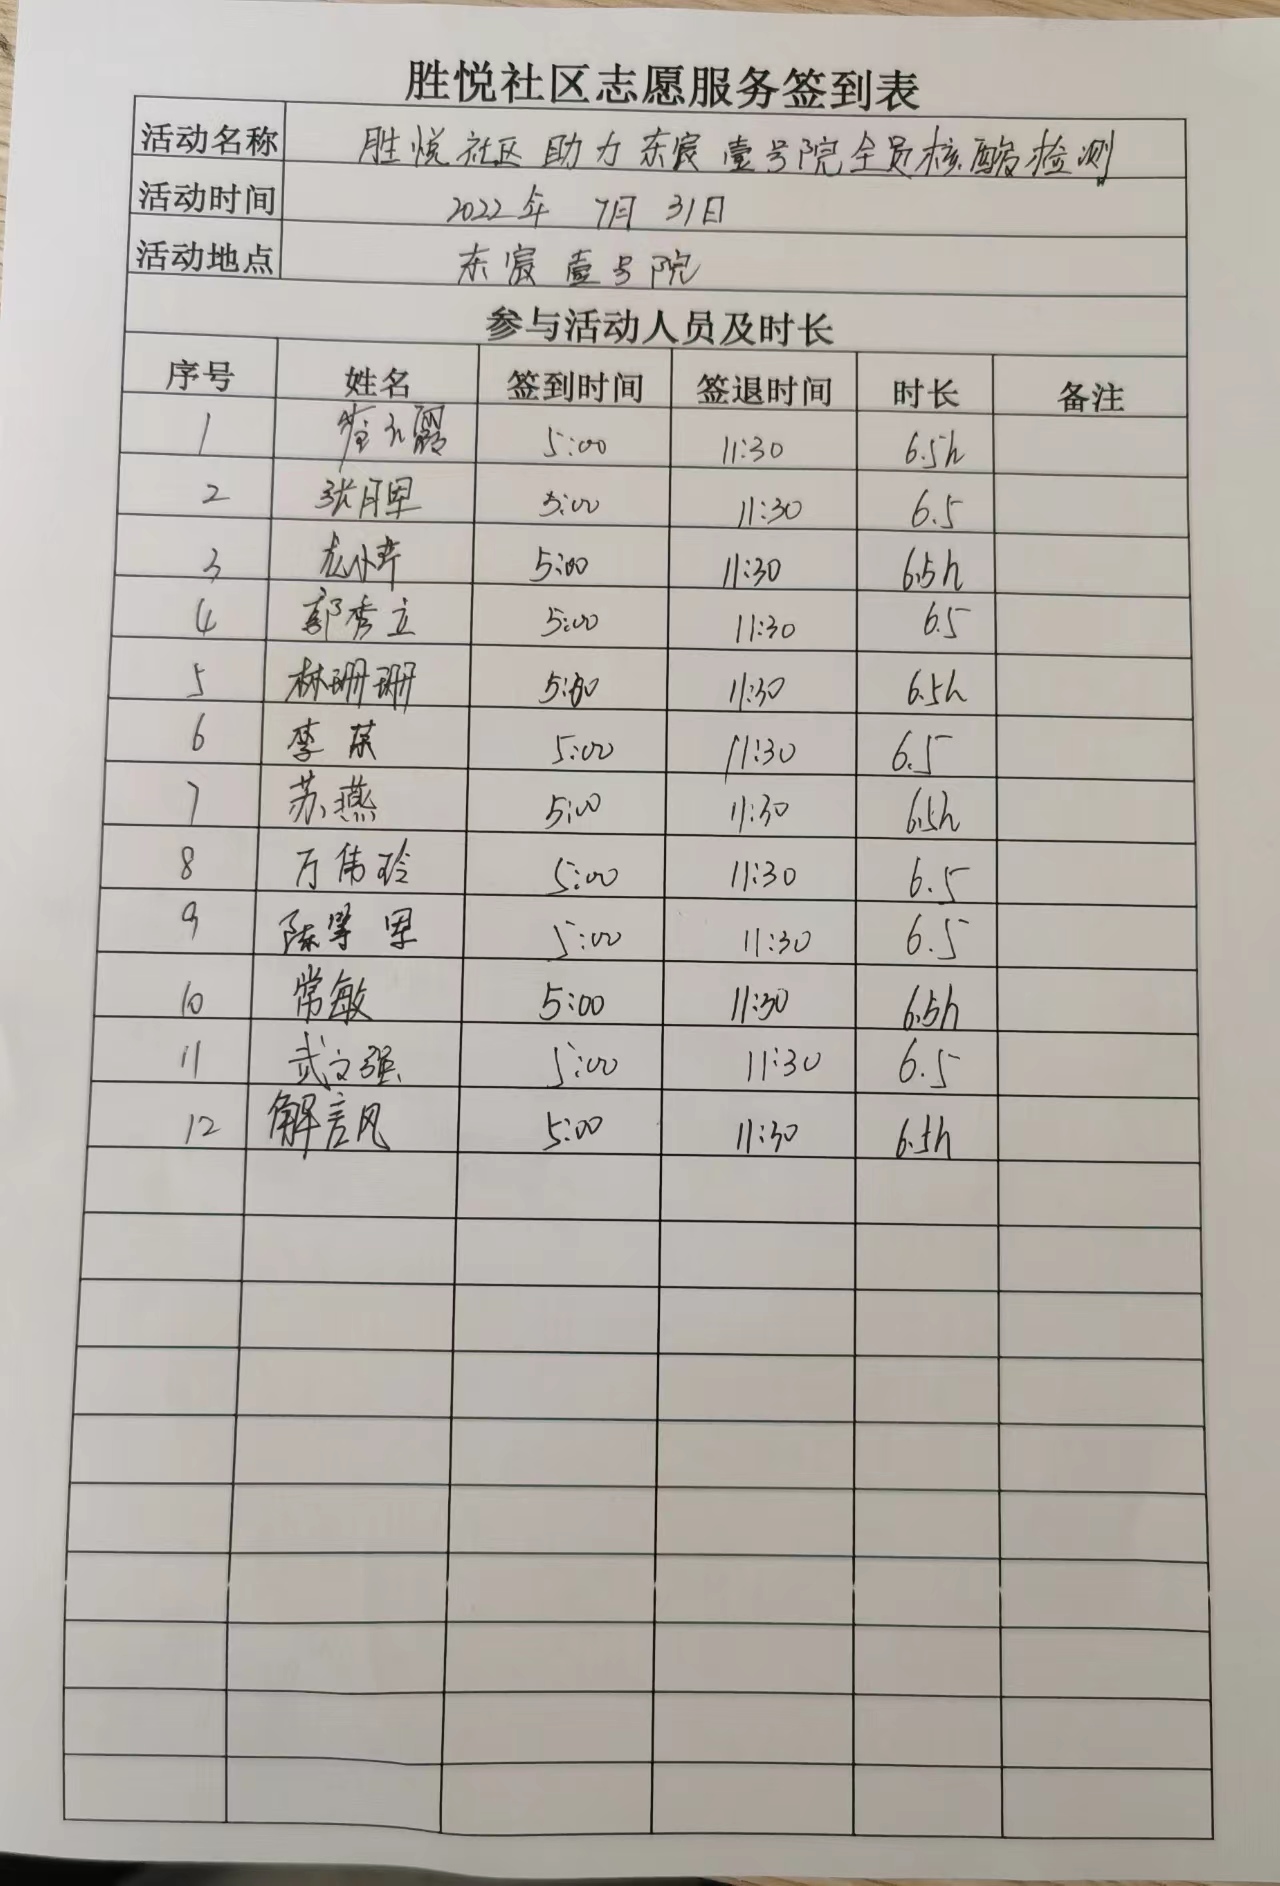 胜悦社区志愿服务签到表
活动名称 胜悦社区助力东宸壹号院全员核酸检测
活动时间 2022年 7月 31日
活动地点 东宸壹号院
参与活动人员及时长
序号 姓名 签到时间 签退时间 时长 备注
1 5:00 11:30 6.5h
2 张月里 5:00 11:30 6.5
3 5:00 11:30 6.5h
4 郭秀立 5:00 11:30 6.5
5 林珊珊 5:00 11:30 6.5h
6 李荣 5:00 11:30 6.5
7 苏燕 5:00 11:30 6.5h
8 万伟玲 5:00 11:30 6.5
9 5:00 11:30 6.5
10 常敏 5:00 11:30 6.5h
11 武文强 5:00 11:30 6.5
12 解言风 5:00 11:30 6.5h